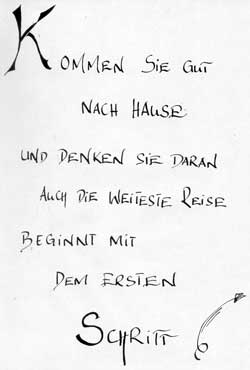 KOMMEN SIE GUT
NACH HAUSE
UND DENKEN SIE DARAN
AUCH DIE WEITESTE REISE
BEGINNT MIT
DEM ERSTEN
SCHRITT